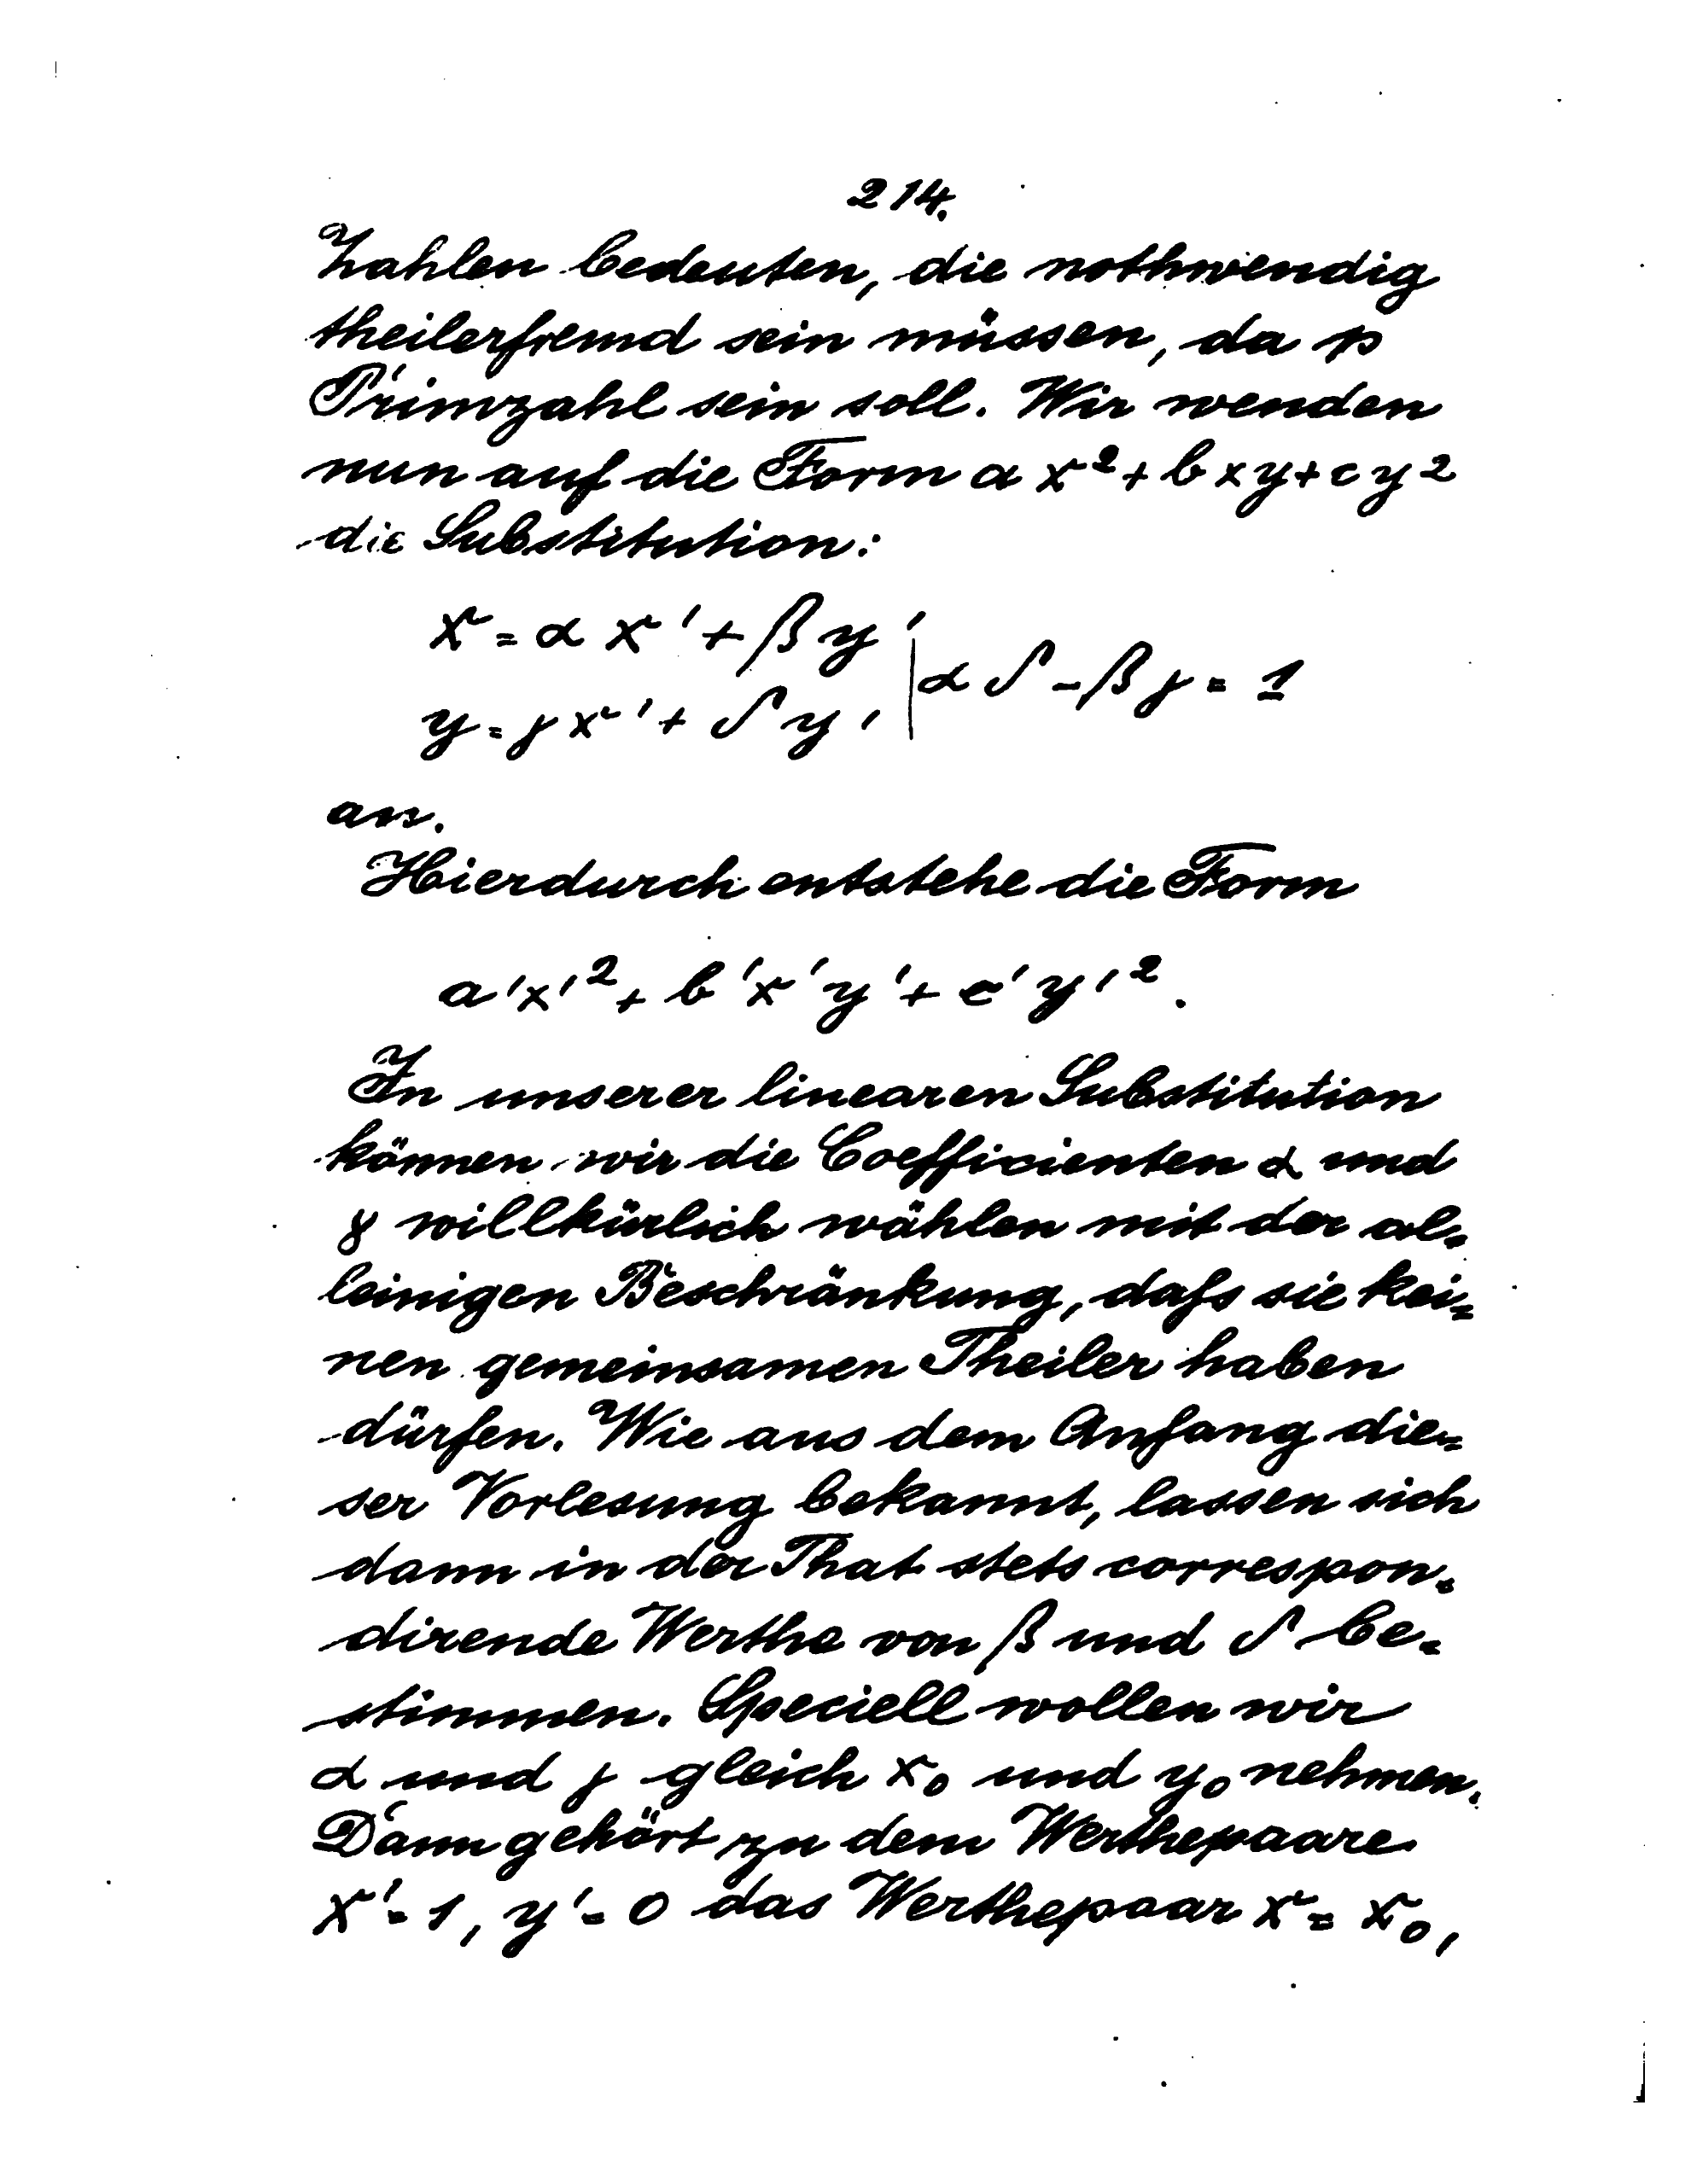 214.
Zahlen bedeuten, die nothwendig
theilerfremd sein müssen, da p
Primzahl sein soll. Wir wenden
nun auf die Form a x² + b x y + c y²
die Substitution:
x = α x' + β y' | α δ - β γ = 1
y = γ x' + δ y' |
an.
Hierdurch entstehe die Form
a'x'² + b'x'y' + c'y'².
In unserer linearen Substitution
können wir die Coefficienten α und
γ willkürlich wählen mit der al=
leinigen Beschränkung, dafs sie kei=
nen gemeinsamen Theiler haben
dürfen. Wie aus dem Anfang die=
ser Vorlesung bekannt, lassen sich
dann in der That stets correspon=
dirende Werthe von β und δ be=
stimmen. Speciell wollen wir
α und γ gleich x₀ und y₀ nehmen.
Dann gehört zu dem Werthepaare
x' = 1, y' = 0 das Werthepaar x = x₀,